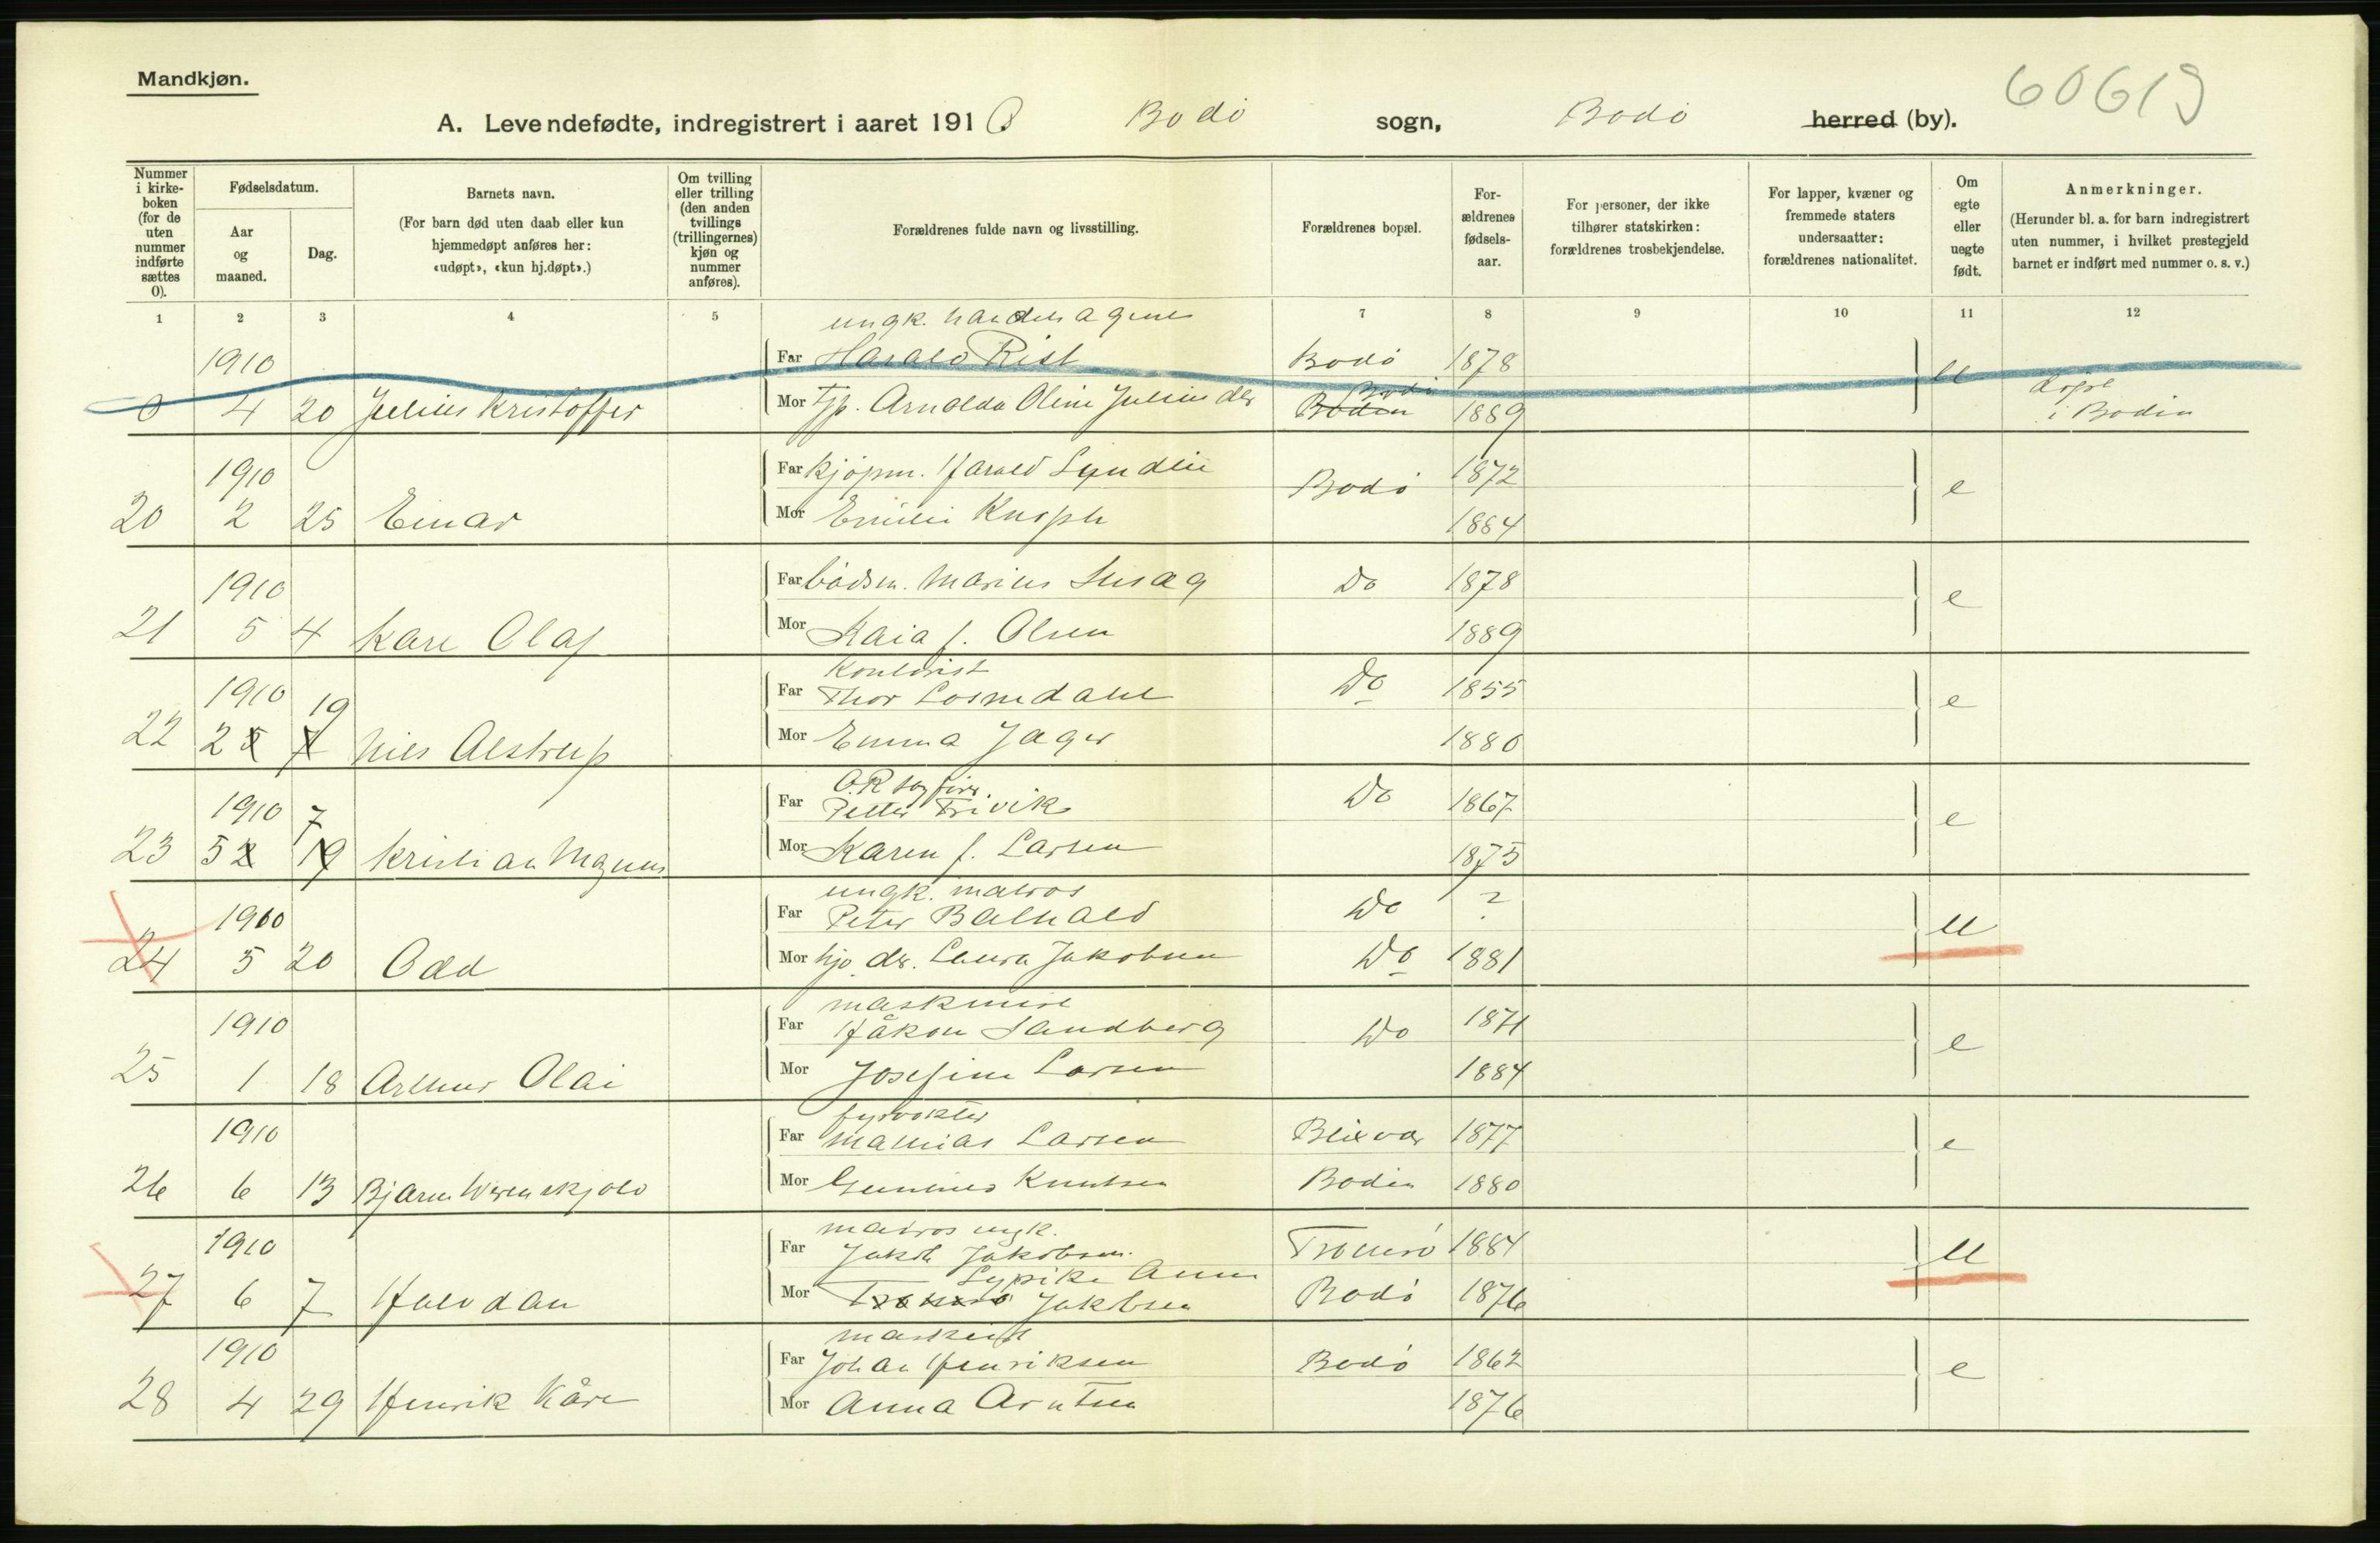 Mandkjøn.
60619
A. Levendefødte, indregistrert i aaret 1910 Bodö sogn, Bodö herred (by).
Nummer i kirke-boken (for de uten nummer indførte sættes 0).
Fødselsdatum.
Aar og maaned.
Dag.
Barnets navn.
(For barn død uten daab eller kun hjemmedøpt anføres her: «udøpt», «kun hj.døpt».)
Om tvilling eller trilling (den anden tvillings (trillingernes) kjøn og nummer anføres).
Forældrenes fulde navn og livsstilling.
Forældrenes bopæl.
For-ældrenes fødsels-aar.
For personer, der ikke tilhører statskirken: forældrenes trosbekjendelse.
For lapper, kvæner og fremmede staters undersaatter: forældrenes nationalitet.
Om egte eller uegte født.
Anmerkninger.
(Herunder bl. a. for barn indregistrert uten nummer, i hvilket prestegjeld barnet er indført med nummer o. s. v.)
1 2 3 4 5 7 8 9 10 11 12
ungk. handelsagent
1910 Far Harald Rist Bodö 1878 u
0 4 20 Julius Kristoffer Mor Tjp. Arnolda Oline Juliusdtr Bodin Bodö 1889 döpt i Bodin
1910 Far Kjöpm. Harald Lyndlie Bodö 1872 e
20 2 25 Einar Mor Emilie Knoph 1884
1910 Far bådsm. Marius Do 1878 e
21 5 4 Kare Olaf Mor Kaia f. Olsen 1889
Kontorist
1910 19 Far Thor Losnedahl Do 1855 e
22 2 5 7 Niels Alstrup Mor Emma Jager 1880
O.R sagfører
1910 7 Far Petter Trivik Do 1867 e
23 5 2 19 Kristian Magnus Mor Karen f. Larsen 1875
ungk. matros
1910 Far Peter Do ? u
24 5 20 Odd Mor hjp. ds. Laura Jakobsen Do 1881
maskinist
1910 Far Håkon Sandberg Do 1871 e
25 1 18 Arthur Olai Mor Josefine Larsen 1884
fyrvokter
1910 Far Mathias Larsen Blixvær 1877 e
26 6 13 Bjarne Werenskjold Mor Knutsen Bodin 1880
matros ungk.
1910 Far Jakob Jakobsen Tromsö 1884 u
27 6 7 Halvdan Mor Tromsö Sypike Anna Jakobsen Bodö 1876
maskinist
1910 Far Johan Henriksen Bodö 1862 e
28 4 29 Henrik Kåre Mor Anna Arntsen 1876